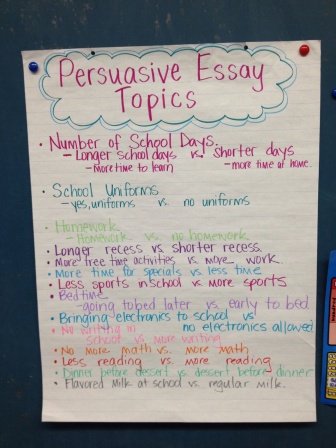 Persuasive Essay
Topics
• Number of School Days.
- Longer school days vs. shorter days
- more time to learn - more time at home.
• School Uniforms
- yes, uniforms vs. no uniforms
• Homework
- Homework vs. no homework
• Longer recess vs. shorter recess.
• More free time activities vs more work
• More time for specials vs less time
• Less sports in school vs more sports
• Bedtime
- going to bed later vs early to bed
• Bringing electronics to school vs no electronics allowed
• No writing in school vs more writing
• No more math vs. more math
• Less reading vs. more reading
• Dinner before dessert vs dessert before dinner
• Flavored Milk at school vs regular milk.